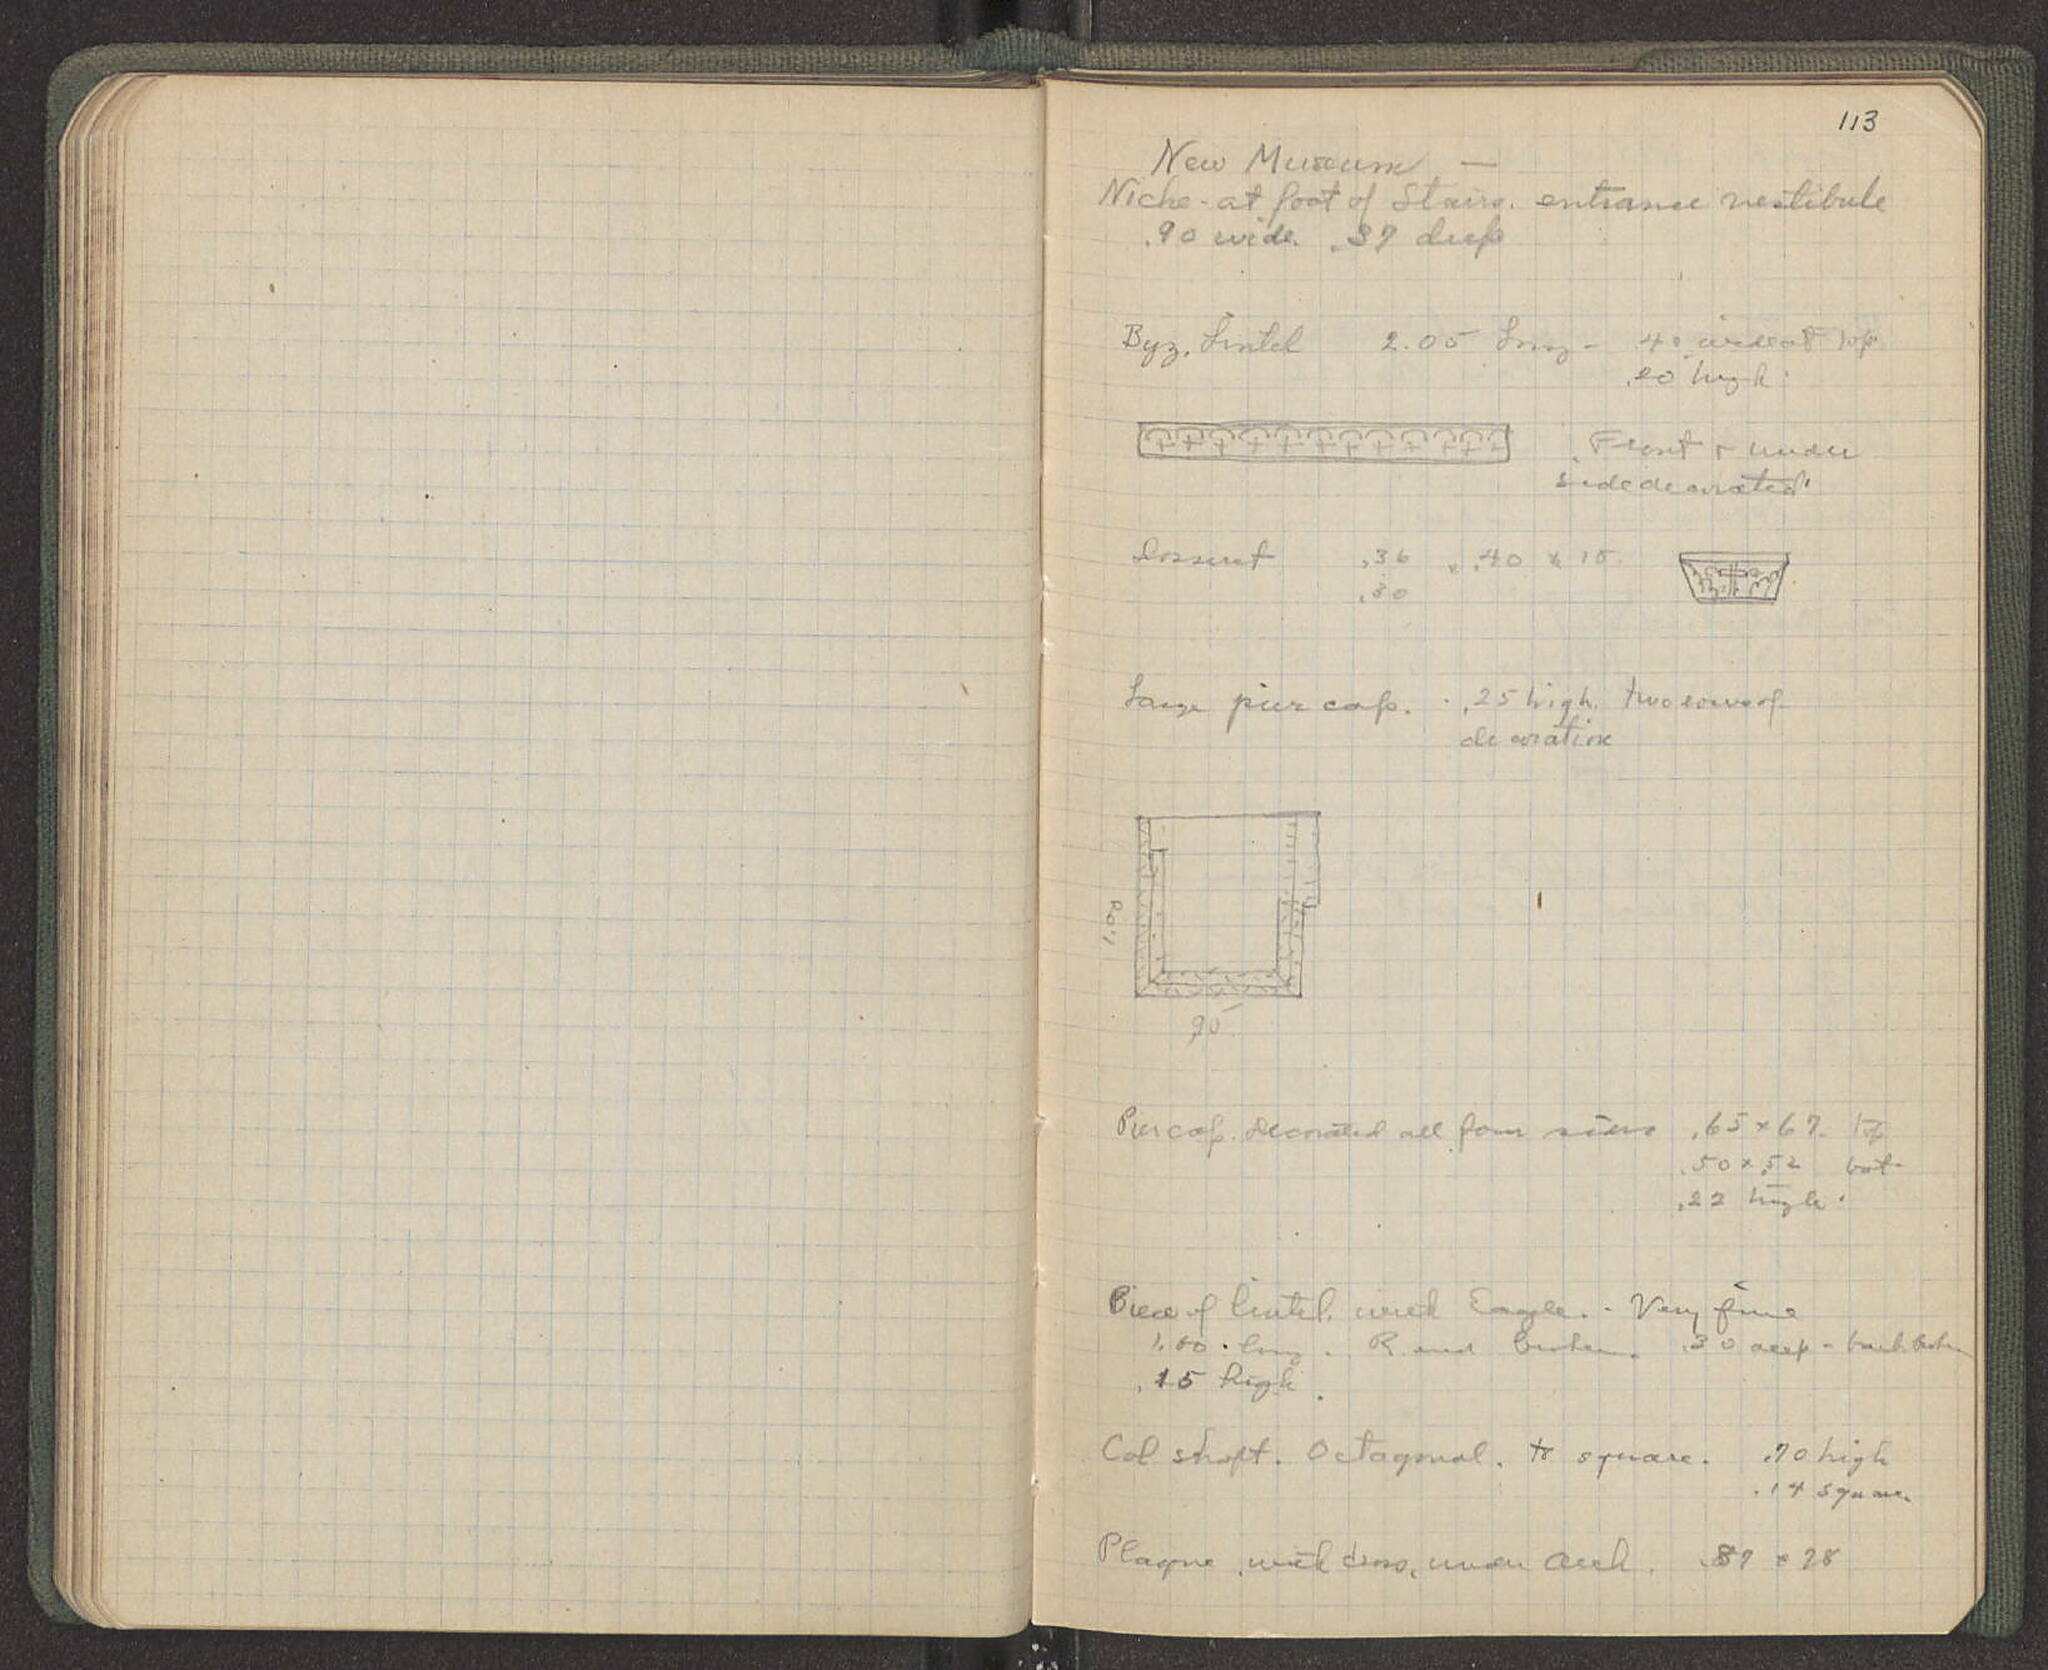 113
New Museum —
Niche - at foot of Stairs. entrance vestibule
.90 wide. .37 deep
Byz. Lintel 2.05 long - .40 wide at top
.20 high.
Front & under
side decorated.
Dosseret .36 x .40 x 15
.30
Large pier cap. - .25 high. two rows of
decoration
1.09
.95
Pier cap. decorated all four sides .65 x 67. top
.50 x .52 bot.
.22 high.
Piece of lintel. with Eagle. - Very fine
1.00 . long . R. end broken. .30 deep - back broken
.15 high.
Col shaft. Octagonal. to square. .70 high
.14 square
Plaque with cross, under arch. .87 x 78